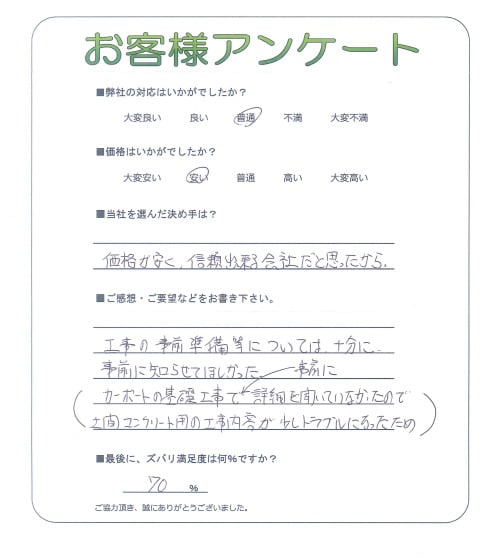 お客様アンケート
■弊社の対応はいかがでしたか？
大変良い 良い 普通 不満 大変不満
■価格はいかがでしたか？
大変安い 安い 普通 高い 大変高い
■当社を選んだ決め手は？
価格が安く、信頼出来る会社だと思ったから。
■ご感想・ご要望などをお書き下さい。
工事の事前準備等については、十分に
事前に知らせてほしかった
事前に
(カーポートの基礎工事で詳細を聞いていなかったので
土間コンクリート用の工事内容が少しトラブルになったため)
■最後に、ズバリ満足度は何%ですか？
70 %
ご協力頂き、誠にありがとうございました。